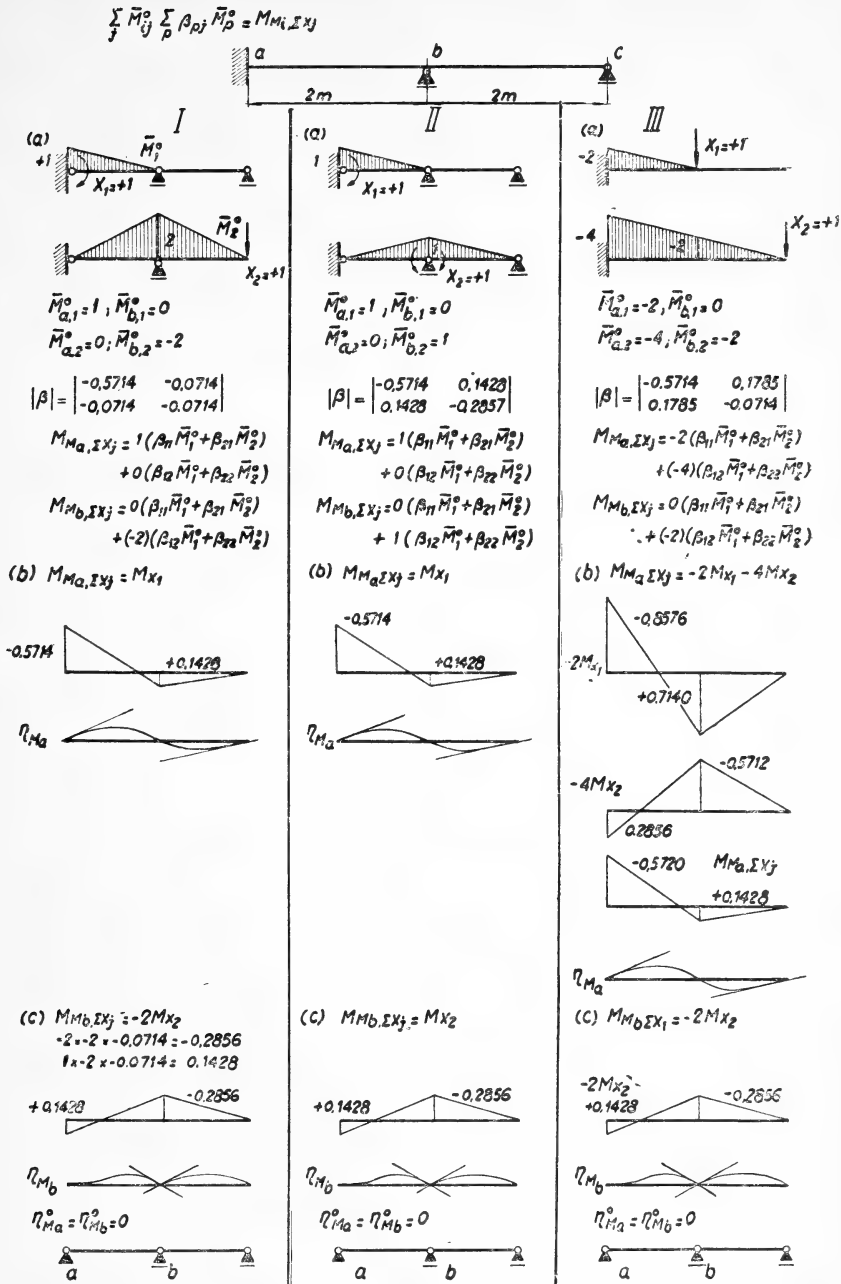 ∑_j M̄°_ij ∑_p β_pj M̄°_p = M_Mi,ΣXj
a b c
2m 2m
I
(a)
+1 M̄°_1
X_1=+1
M̄°_2
2
X_2=+1
M̄°_a,1=1 ; M̄°_b,1=0
M̄°_a,2=0; M̄°_b,2=-2
|β|= |-0,5714 -0,0714|
|-0,0714 -0.0714|
M_Ma,ΣXj=1(β_11M̄°_1+β_21M̄°_2)
+0(β_12M̄°_1+β_22M̄°_2)
M_Mb,ΣXj=0(β_11M̄°_1+β_21M̄°_2)
+(-2)(β_12M̄°_1+β_22M̄°_2)
(b) M_Ma,ΣXj=Mx_1
-0.5714
+0,1428
η_Ma
(c) M_Mb,ΣXj=-2Mx_2
-2×-2×-0,0714=-0,2856
1×-2×-0.0714= 0,1428
+0,1428 -0,2856
η_Mb
η°_Ma=η°_Mb=0
a b
II
(a)
1
X_1=+1
1
X_2=+1
M̄°_a,1=1, M̄°_b,1=0
M̄°_a,2=0; M̄°_b,2=1
|β|= |-0,5714 0,1428|
|0.1428 -0,2857|
M_Ma,ΣXj=1(β_11M̄°_1+β_21M̄°_2)
+0(β_12M̄°_1+β_22M̄°_2)
M_Mb,ΣXj=0(β_11M̄°_1+β_21M̄°_2)
+ 1(β_12M̄°_1+β_22M̄°_2)
(b) M_MaΣXj=Mx_1
-0.5714
+0.1428
η_Ma
(c) M_Mb,ΣXj=Mx_2
+0,1428 -0,2856
η_Mb
η°_Ma=η°_Mb=0
a b
III
(a)
-2 X_1=+1
-4 -2 X_2=+1
M̄°_a,1=-2, M̄°_b,1=0
M̄°_a,2=-4; M̄°_b,2=-2
|β|= |-0.5714 0,1785|
|0.1785 -0.0714|
M_Ma,ΣXj=-2(β_11M̄°_1+β_21M̄°_2)
+(-4)(β_12M̄°_1+β_22M̄°_2)
M_Mb,ΣXj=0(β_11M̄°_1+β_21M̄°_2)
+(-2)(β_12M̄°_1+β_22M̄°_2)
(b) M_MaΣXj=-2Mx_1-4Mx_2
-0,8576
-2Mx_1
+0.7140
-0,5712
-4Mx_2
0.2856
-0,5720 M_Ma,ΣXj
+0,1428
η_Ma
(c) M_MbΣX_1=-2Mx_2
-2Mx_2
+0,1428 -0,2856
η_Mb
η°_Ma=η°_Mb=0
a b